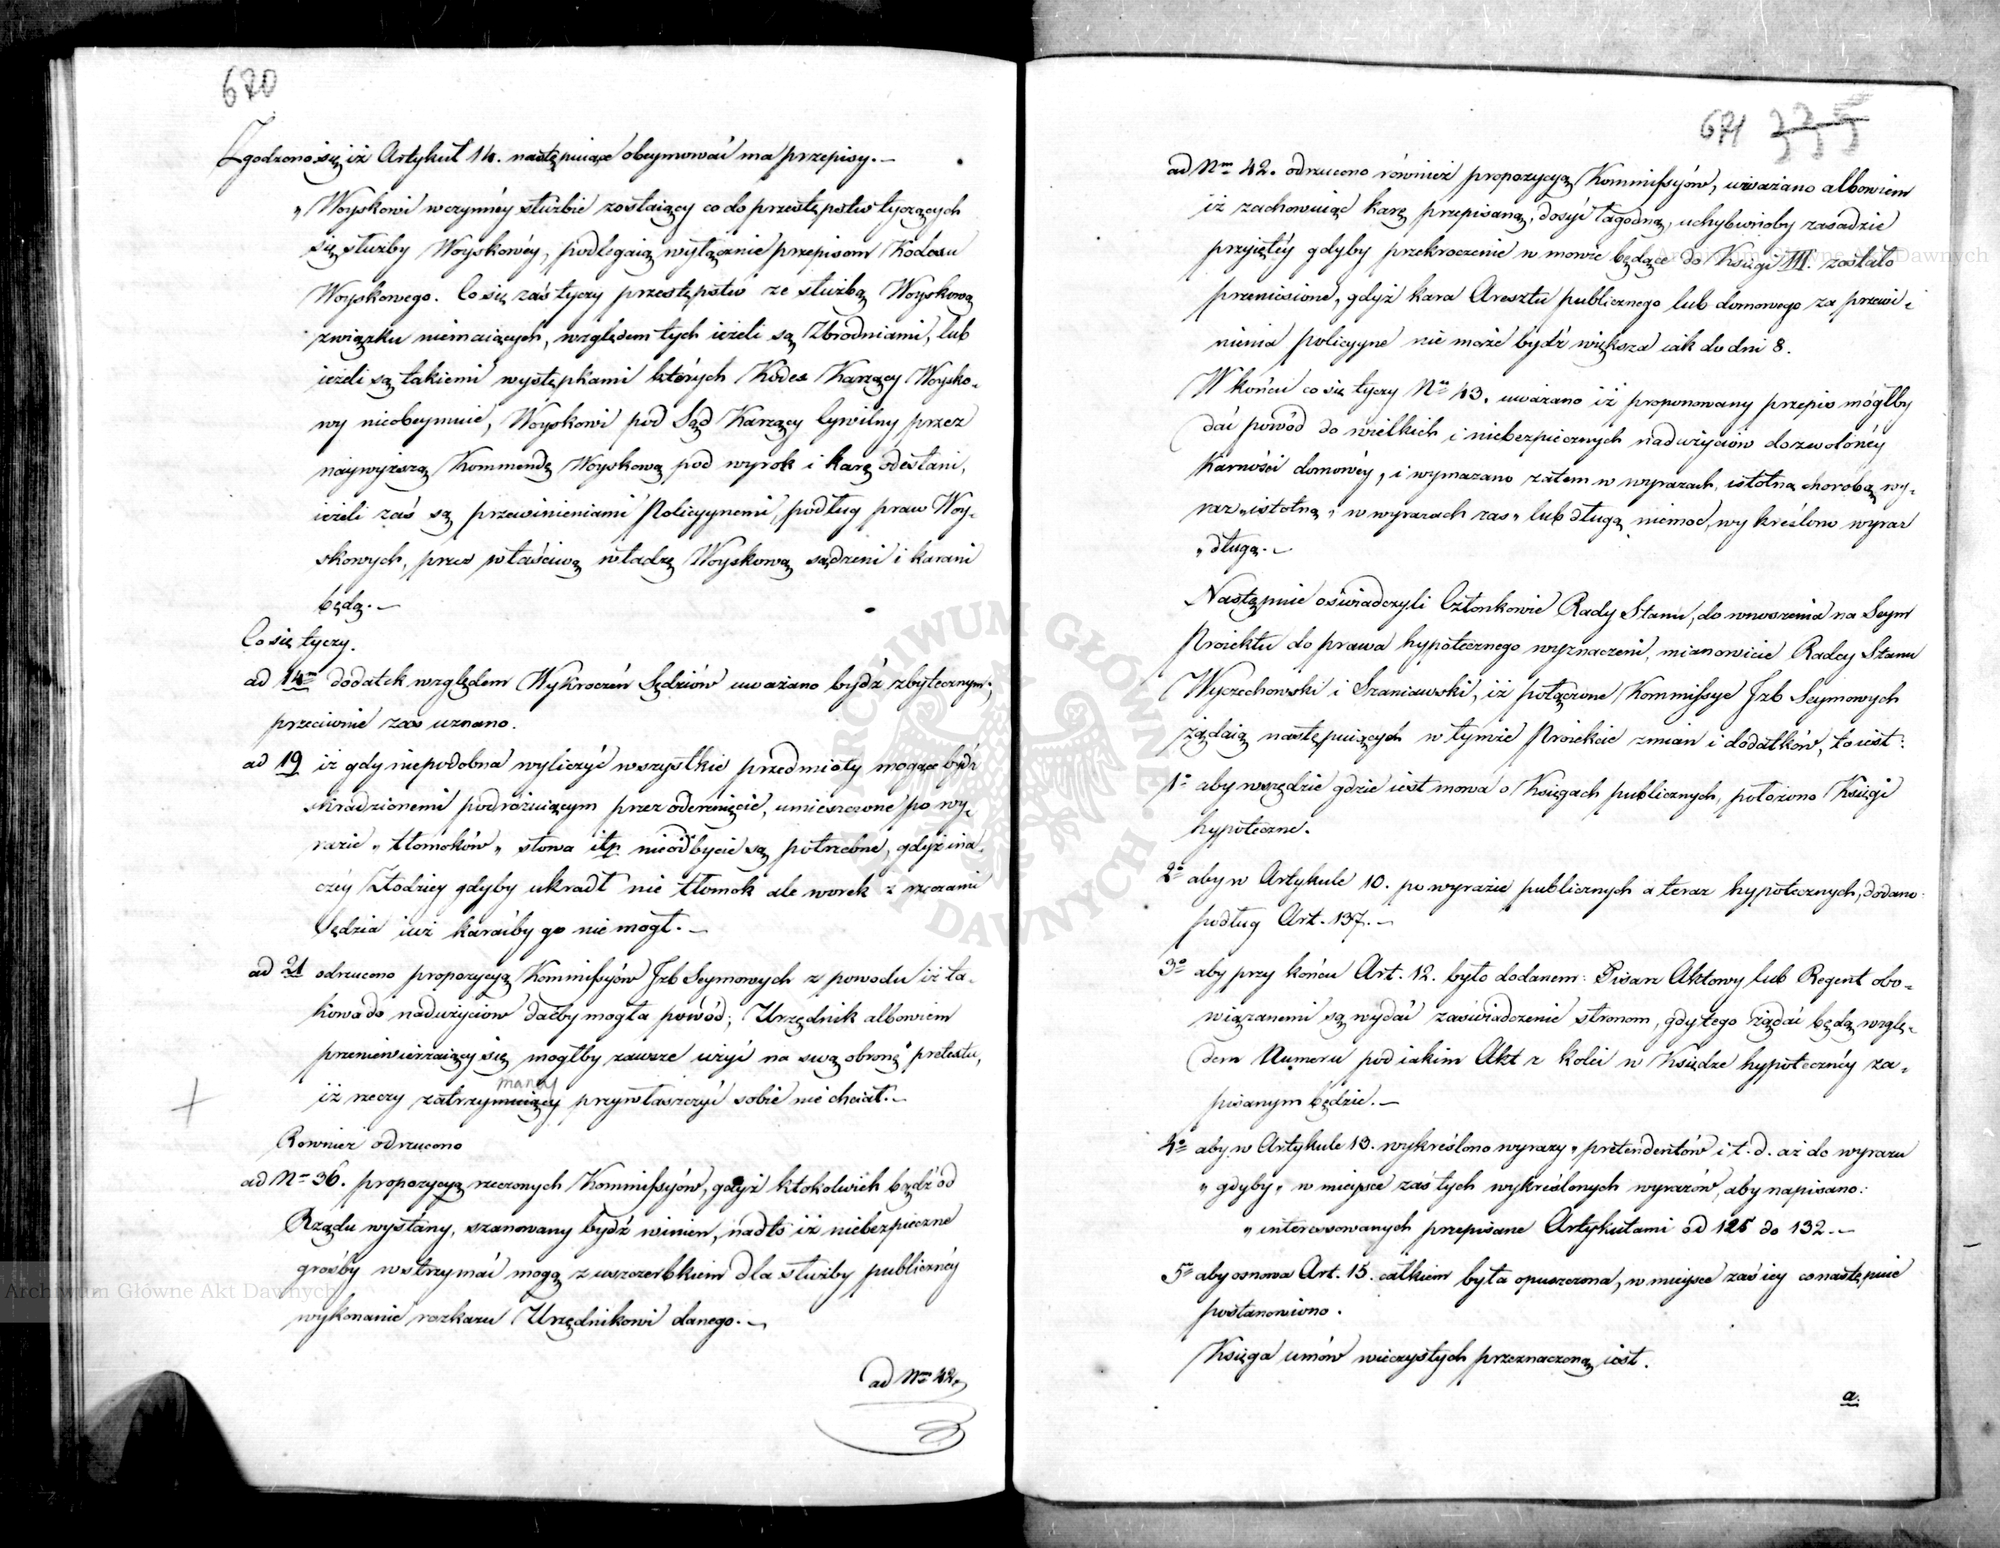 670
Zgodzono się iż Artykuł 14. następuiące obeymować ma przepisy.—
„Woyskowi w czynnéy służbie zostaiący co do przestępstw tyczących
się służby Woyskowéy, podlegaią wyłącznie przepisom Kodexu
Woyskowego. Co się zaś tyczy przestępstw ze służbą Woyskową
związku niemaiących, względem tych ieżeli są Zbrodniami, lub
ieżeli są takiemi występkami których Kodex Karzący Woysko-
wy nieobeymuie, Woyskowi pod Sąd Karzący Cywilny przez
naywyższą Kommendę Woyskową pod wyrok i karę odesłani,
ieżeli zaś są przewinieniami Policyynemi, podług praw Woy-
skowych, przez właściwą władzę Woyskową sądzeni i karani
będą.—
Co się tyczy.
ad 14m dodatek względem Wykroczeń Sędziów uważano bydź zbytecznym;
przeciwnie zaś uznano.
ad 19 iż gdy niepodobna wyliczyć wszystkie przedmioty mogące bydź
skradzionemi podróżuiącym przez oderznięcie, umieszczone po wy-
razie „tłomoków„ słowa itp. nieodbycie są potrzebne, gdyż ina-
czéy Złodziey gdyby ukradł nie tłomok ale worek z rzeczami
Sędzia iuż karaćby go nie mógł.—
ad 21 odrzucono propozycyą Kommissyów Izb Seymowych z powodu iż ta-
kowa do nadużyciów daćby mogła powód; Urzędnik albowiem
przeniewierzaiący się mógłby zawsze użyć na swą obronę pretextu,
many
iż rzeczy zatrzymuiący przywłaszczyć sobie nie chciał.—
Rownież odrzucono
ad No 36. propozycyą rzeczonych Kommissyów, gdyż ktokolwiek bądź od
Rządu wysłany, szanowany bydź winien, nadto iż niebezpieczne
groźby wstrzymać mogą z uszczerbkiem dla służby publicznéy
wykonanie rozkazu Urzędnikowi danego.—
ad Nm 42.
671
ad Nm 42. odrzucono również propozycyą Kommissyów, uważano albowiem
iż zachowuiąc karę przepisaną, dosyć łagodną, uchybionoby zasadzie
przyiętéy gdyby przekroczenie w mowie będące do Księgi III. zostało
przeniesione, gdyż kara Aresztu publicznego lub domowego za przewi-
nienia policyyne nie może bydź większa iak do dni 8.
W końcu co się tyczy Nru 43. uważano iż proponowany przepis mógłby
dać powód do wielkich i niebezpiecznych nadużyciów dozwolonéy
Karności domowéy, i wymazano zatem w wyrazach, istotną chorobą wy-
raz „istotną„ w wyrazach zaś „lub długą niemoc, wykreślono wyraz
„długą.—
Następnie oświadczyli Członkowie Rady Stanu, do wnoszenia na Seym
Proiektu do prawa hypotecznego wyznaczeni, mianowicie Radcy Stanu
Wyczechowski i Szaniawski, iż połączone Kommissye Izb Seymowych
żądaią następuiących w tymże Proiekcie zmian i dodatków, to iest:
1o aby wszędzie gdzie iest mowa o Księgach publicznych, położono Księgi
hypoteczne.
2o aby w Artykule 10. po wyrazie publicznych a teraz hypotecznych, dodano:
podług Art. 137.—
3o aby przy końcu Art. 12. było dodanem: Pisarz Aktowy lub Regent obo-
wiązanemi są wydać zaświadczenie stronom, gdy tego żądać będą wzglę-
dem Numeru pod iakim Akt z kolei w Księdze hypotecznéy za-
pisanym będzie.—
4o aby w Artykule 13. wykreślono wyrazy „pretendentów i t. d. aż do wyrazu
„gdyby„ w mieysce zaś tych wykreślonych wyrazów, aby napisano:
„interessowanych przepisane Artykułami od 125 do 132.—
5o aby osnowa Art. 15. całkiem była opuszczona, w mieysce zaś iéy co następuie
postanowiono.
Księga umów wieczystych przeznaczoną iest.
a.
Archiwum Główne Akt Dawnych
Archiwum Główne Akt Dawnych
ARCHIWUM GŁÓWNE AKT DAWNYCH